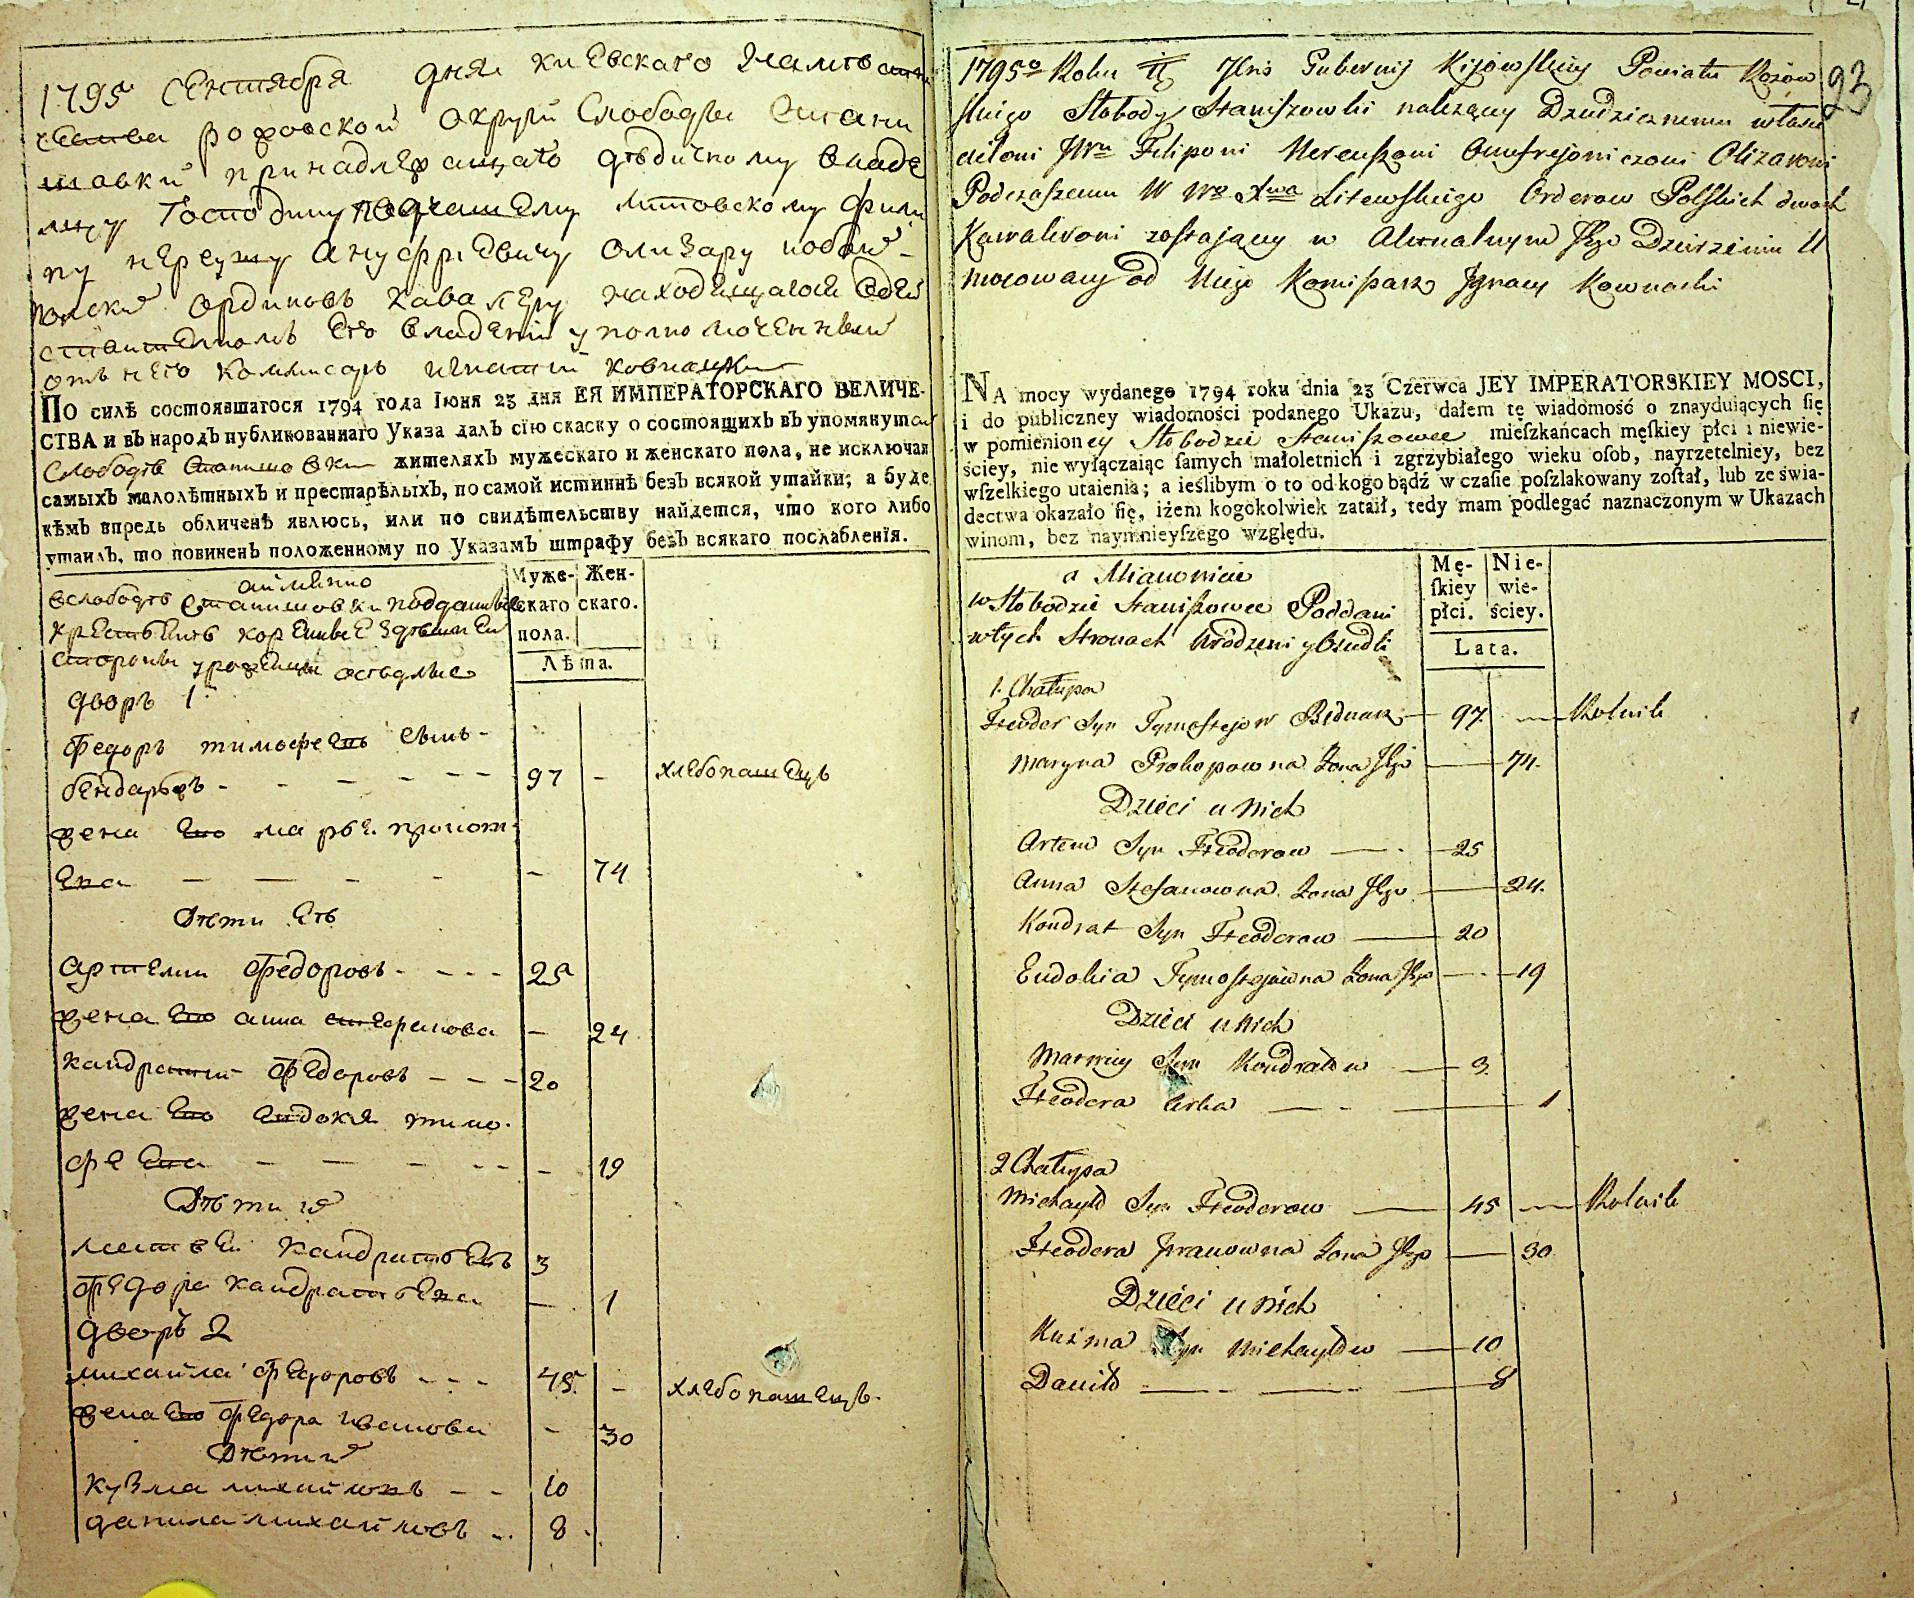 1795 Сентября дня Киевскаго Намѣст
чества округи Слободы Стани
шовки принадлежащаго дѣдичному владе
лцу Господину Подчашему литовскому Фили
пу нереушу Ануфріевичу Олизару
ординовъ кавалеру находящагося
его владеніи уполномоченный
отъ него коммисаръ игнатий ковнацки
По силѣ состоявшагося 1794 года Іюня 23 дня ЕЯ ИМПЕРАТОРСКАГО ВЕЛИЧЕ-
СТВА и въ народъ публикованнаго Указа далъ сію скаску о состоящихъ въ упомянутой
Слободѣ Станишовки жителяхъ мужескаго и женскаго пола, не исключая
самыхъ малолѣтныхъ и престарѣлыхъ, по самой истиннѣ безъ всякой утайки; а буде
кѣмъ впредь обличенъ явлюсь, или по свидѣтельству найдется, что кого либо
утаилъ, то повиненъ положенному по Указамъ штрафу безъ всякаго послабленія.
аимянно
вслободѣ Станишовки подданые
Сторони урожденци оседлые
Муже- Жен-
скаго скаго.
пола.
Лѣта.
дворъ 1
Федоръ тимофеевъ сынъ -
бендарь - - - - - - 97 - хлебопашецъ
жена его марья прокоп-
ева - - - - - 74
Дѣти Ево
артемии Федоровъ - - - - 25
жена его анна стефанова - 24
кандратии Федоровъ - - - 20
жена его евдокия тимо-
феева - - - - - - 19
Дѣти их
матвеи кандратьевъ 3
Федора кандратьева - 1
дворъ 2
михаила Федоровъ - - - 45 - хлебопашецъ.
жена его Федора иванова - 30
Дѣти их
кузма михаиловъ - - 10
данила михаиловъ - 8
93
1795º Roku Gubernij Kijowskiey Powiatu
skiego Słobody Staniszowki należący Dziedzicznemu włascicielowi
Filipowi Nereuszowi Onufrejowiczowi Olizarowi
Podczaszemu W Wº Xwa Litewskiego Orderow Polskich dwoch
Kawalerowi zostający w Aktualnym Jego Dzierżeniu U
mocowany od Niego Komisarz Jgnacy Kownacki
NA mocy wydanego 1794 roku dnia 23 Czerwca JEY IMPERATORSKIEY MOSCI,
i do publiczney wiadomości podanego Ukazu, dałem tę wiadomość o znayduiących ſię
w pomienioney Słobodzie Staniszowce mieſzkańcach męſkiey płci i niewie-
ściey, nie wyłączaiąc ſamych małoletnich i zgrzybiałego wieku oſob, nayrzetelniey, bez
wſzelkiego utaienia; a ieślibym o to od kogo bądź w czaſie poſzlakowany zoſtał, lub ze świa-
dectwa okazało ſię, iżem kogokolwiek zataił, tedy mam podlegać naznaczonym w Ukazach
winom, bez naymnieyſzego względu.
a Mianowicie
w Słobodzie Staniszowce Poddani
w tych Stronach Urodzeni y Osiedli
Mę- Nie-
ſkiey wie-
płci. ściey.
Lata.
1. Chałupa
Fteodor Syn Tymoftejow Bednarz — 97 — Rolnik
Maryna Prokopowna Zona Jego — 74.
Dzieci u Nich
Artem Syn Fteodorow — 25
Anna Stefanowna Zona Jego — 24.
Kondrat Syn Fteodorow — 20
Eudokia Tymoftejowna Zona Jego — 19
Dzieci u Nich
Matwiy Syn Kondratow — 3
Fteodora Corka — 1
2 Chałupa
Michayło Syn Fteodorow — 45 — Rolnik
Fteodora Jwanowna Zona Jego — 30
Dzieci u Nich
Kuźma Syn Michayłow — 10
Daniło — 8